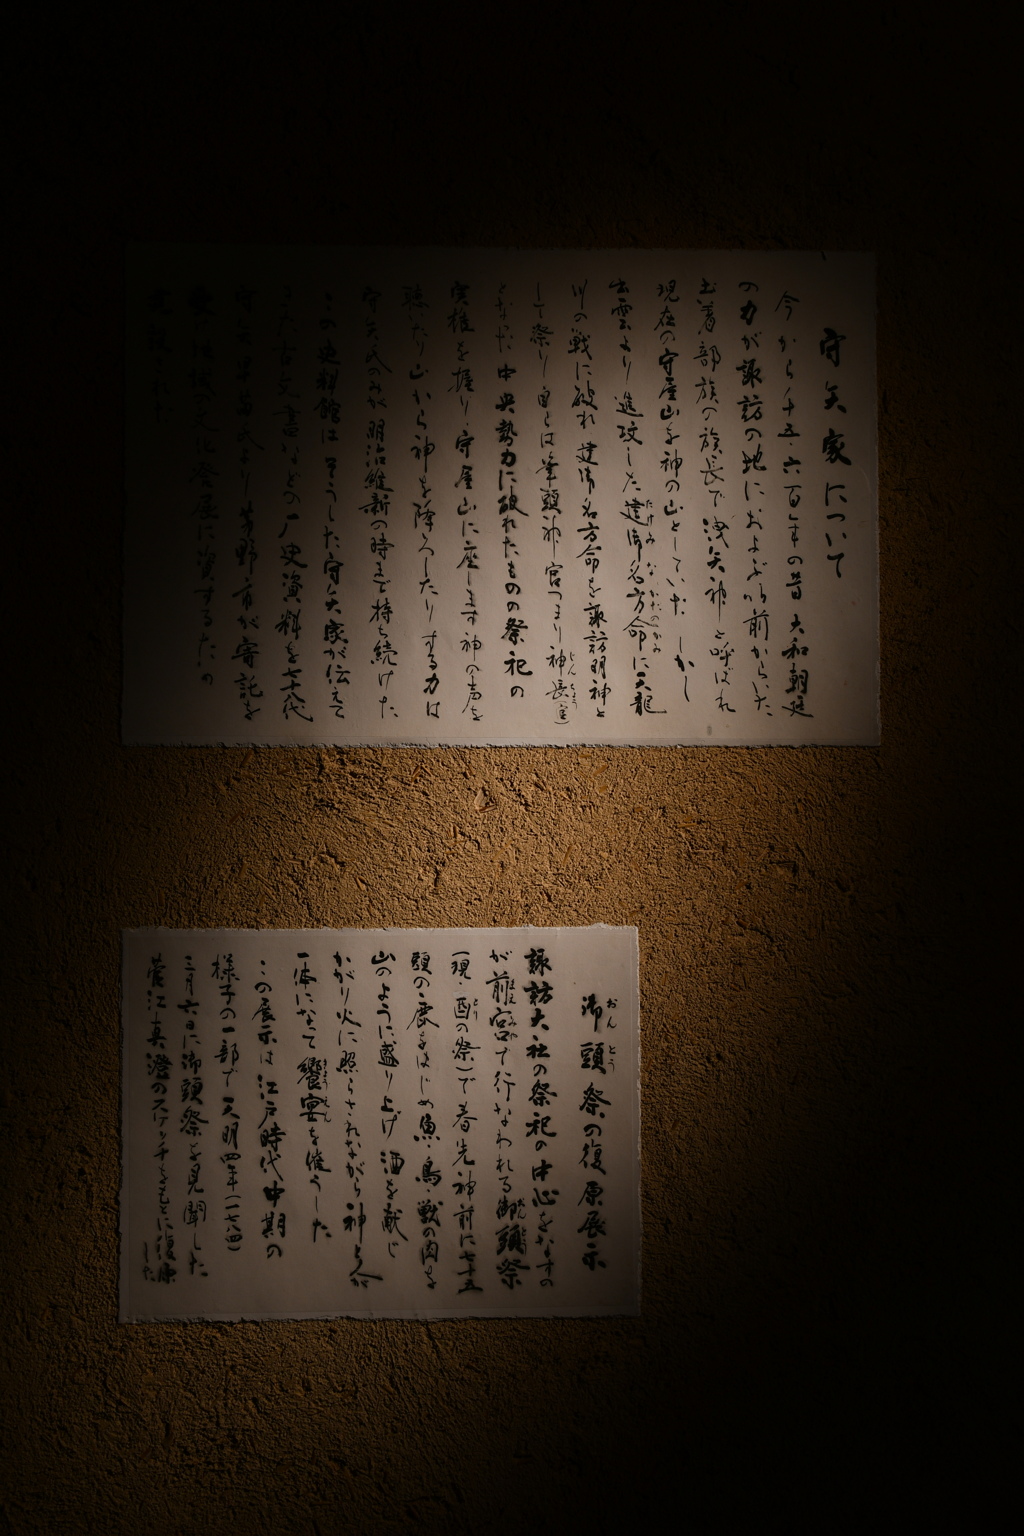 守矢家について
今から千五・六百年の昔 大和朝廷
の力が諏訪の地におよぶ以前からいた
土着部族の族長で洩矢神と呼ばれ
現在の守屋山を神の山としていた しかし
出雲より進攻した建御名方命に天龍
川の戦に破れ 建御名方命を諏訪明神と
して祭り 自らは筆頭神官つまり神長(官)
となった 中央勢力に破れたものの祭祀の
実権を握り、守屋山に座します神の声を
聴いたり山から神を降ろしたりする力は
守矢氏のみが明治維新の時まで持ち続けた
この史料館は そうした守矢家が伝えて
きた古文書などの歴史資料を七十八代
守矢早苗氏より茅野市が寄託を
文化発展に資するための
御頭祭の復原展示
諏訪大社の祭祀の中心をなすの
が前宮で行なわれる御頭祭
(現・酉の祭)で春先神前に七十五
頭の鹿をはじめ魚・鳥・獣の肉を
山のように盛り上げ 酒を献じ
かがり火に照らされながら神と人が
一体になって饗宴を催うした
この展示は 江戸時代中期の
様子の一部で 天明四年(一七八四)
三月六日に御頭祭を見聞した
菅江真澄のスケッチをもとに復原
した